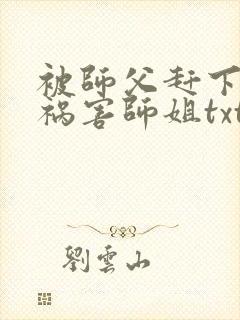 被師父赶下
祸害師姐txt
劉雲山